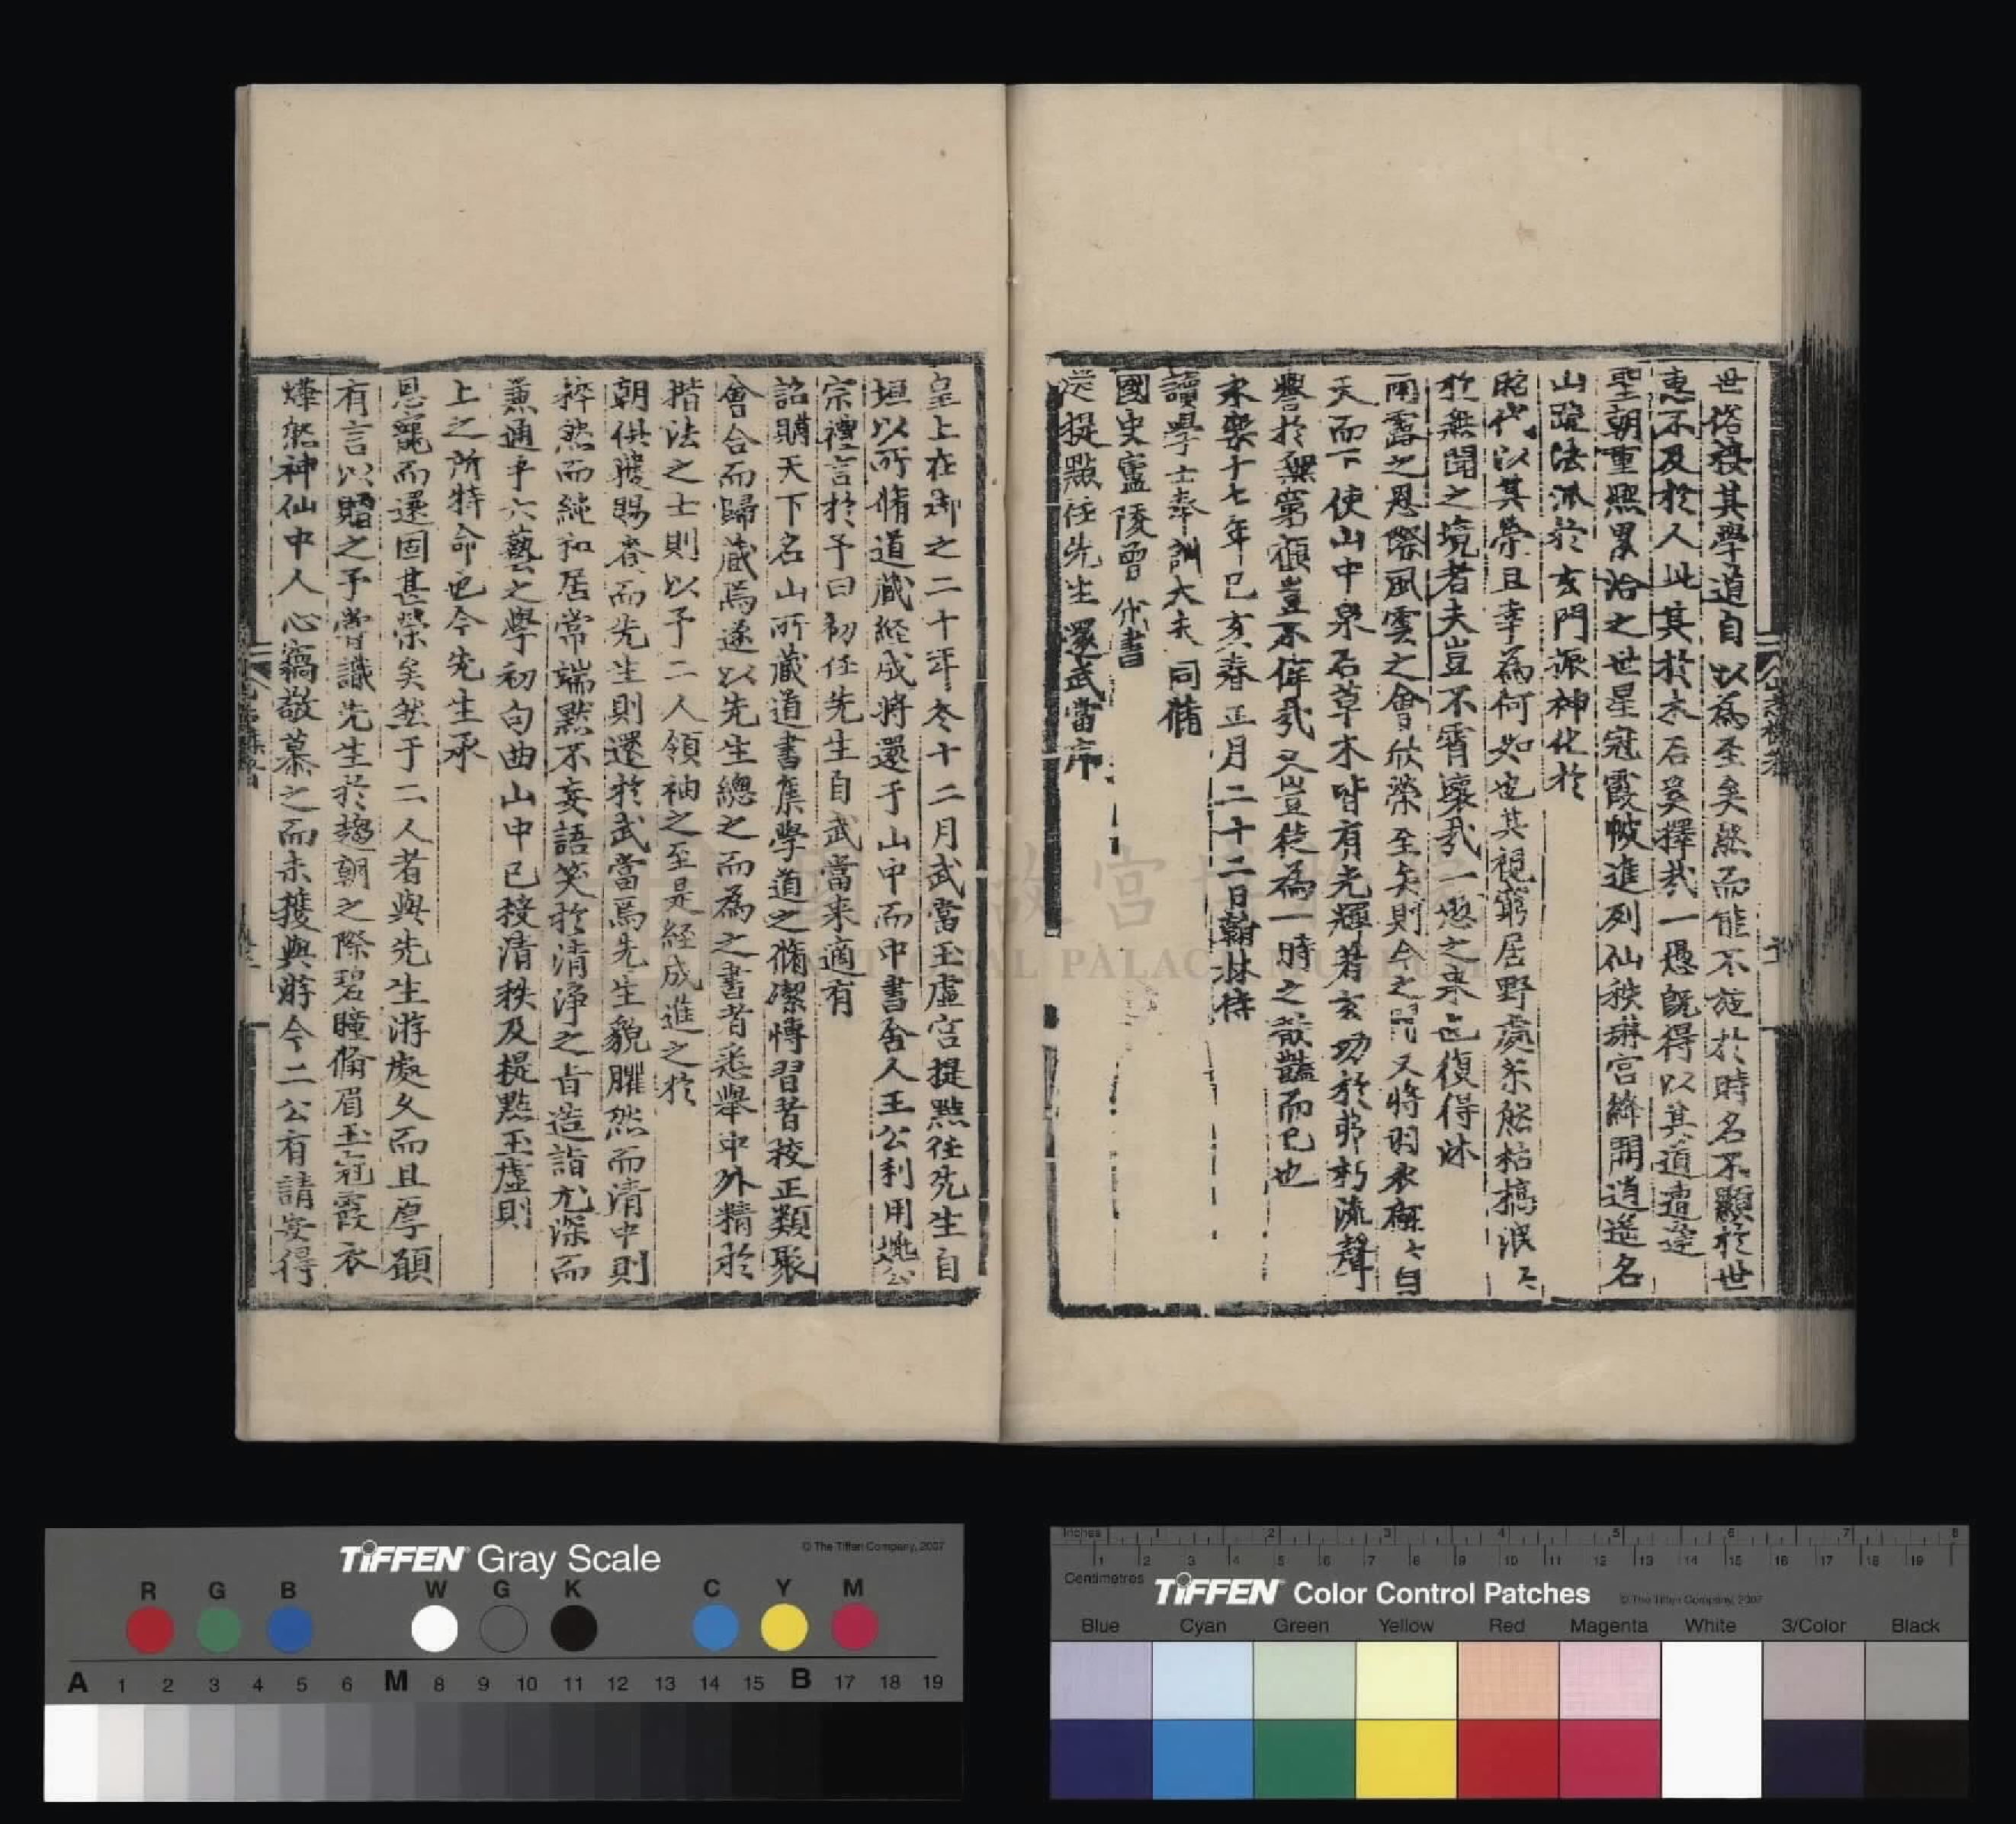 世俗裝其學道自以為至矣然而能不施於時名不顯於世
惠不及於人此其於木石奚擇哉一愚既得以其道遭逢
聖朝重熙累洽之世星冠霞帔進列仙秩琳宮絳闕逍遙名
山躡法派於玄門振神化於
昭代以其榮且幸為何如也其視窮居野處系然枯槁泯々
於無聞之境者夫豈不霄壤哉一愚之来也復得沐
雨露之恩際風雲之會欣榮至矣則今之又將羽衣褷々自
天而下使山中泉石草木皆有光輝著玄功於弗朽流聲
譽於無窮顧豈不偉哉又豈徒為一時之散豔而已也
永樂十七年己亥春正月二十二日翰林侍
讀學士奉訓大夫同脩
國史廬陵曾 代書
送提點任先生還武當序
皇上在御之二十年冬十二月武當玉虛宮提點任先生自
垣以所脩道藏経成將還于山中而中書舍人王公利用姚公
宗禮言於予曰初任先生自武當来適有
詔購天下名山所藏道書集學道之脩潔慱習者校正類聚
會合而歸藏焉遂以先生總之而為之書者悉舉中外精於
揩法之士則以予二人領袖之至是経成進之於
朝供獲賜者而先生則還於武當焉先生貌臞然而清中則
粹然而純和居常端默不妄語笑於清淨之旨造詣尤深而
兼通乎六藝之學初句曲山中已授清秩及提點玉虛則
上之所特命也今先生承
恩寵而還固甚榮矣然于二人者與先生游處久而且厚願
有言以贈之予嘗識先生於趨朝之際碧瞳脩眉玉冠霞衣
燁然神仙中人心竊敬慕之而未獲與游今二公有請安得
國立故宮博物院
NATIONAL PALACE MUSEUM
TIFFEN Gray Scale
© The Tiffen Company, 2007
R G B W G K C Y M
A 1 2 3 4 5 6 M 8 9 10 11 12 13 14 15 B 17 18 19
Inches 1 2 3 4 5 6 7 8
1 2 3 4 5 6 7 8 9 10 11 12 13 14 15 16 17 18 19
Centimetres
TIFFEN Color Control Patches
© The Tiffen Company, 2007
Blue Cyan Green Yellow Red Magenta White 3/Color Black